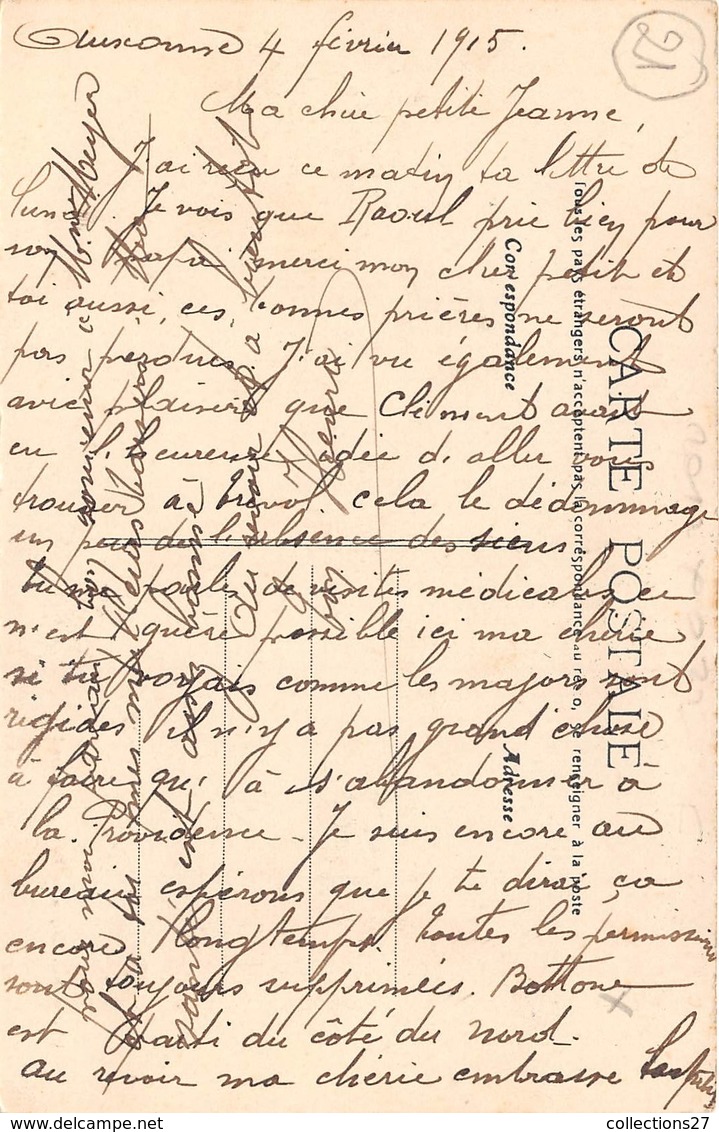 Auxonne 4 février 1915.
21
Ma chère petite Jeanne,
J'ai reçu ce matin ta lettre de
lundi. Je vois que Raoul prie bien pour
son papa, merci mon cher petit et
toi aussi, ces bonnes prières ne seront
pas perdues. J'ai vu également
avec plaisir que Clément avait
eu l'heureuse idée d'aller vous
trouver à Trévol cela le dédommage
un peu de l'absence des siens
tu me parles de visites médicales ce
n'est guère possible ici ma chérie
si tu voyais comme les majors sont
rigides il n'y a pas grand chose
à faire qu'à s'abandonner à
la Providence - Je suis encore au
bureau espérons que je te dirai ça
encore longtemps. toutes les permissions
sont toujours supprimées. Bottone
est parti du côté du nord.
au revoir ma chérie embrasse
CARTE POSTALE
Tous les pays étrangers n'acceptent pas la correspondance au recto, se renseigner à la poste
Correspondance
Adresse
Mme Meyer
Pierre
collections27